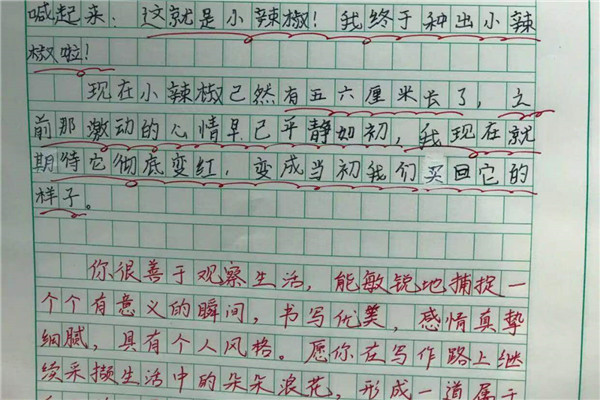 喊起来：这就是小辣椒！我终于种出小辣
椒啦！
现在小辣椒已然有五六厘米长了，之
前那激动的心情早已平静如初，我现在就
期待它彻底变红，变成当初我们买回它的
样子。
你很善于观察生活，能敏锐地捕捉一
个个有意义的瞬间，书写优美，感情真挚
细腻，具有个人风格。愿你在写作路上继
续采撷生活中的朵朵浪花，形成一道属于